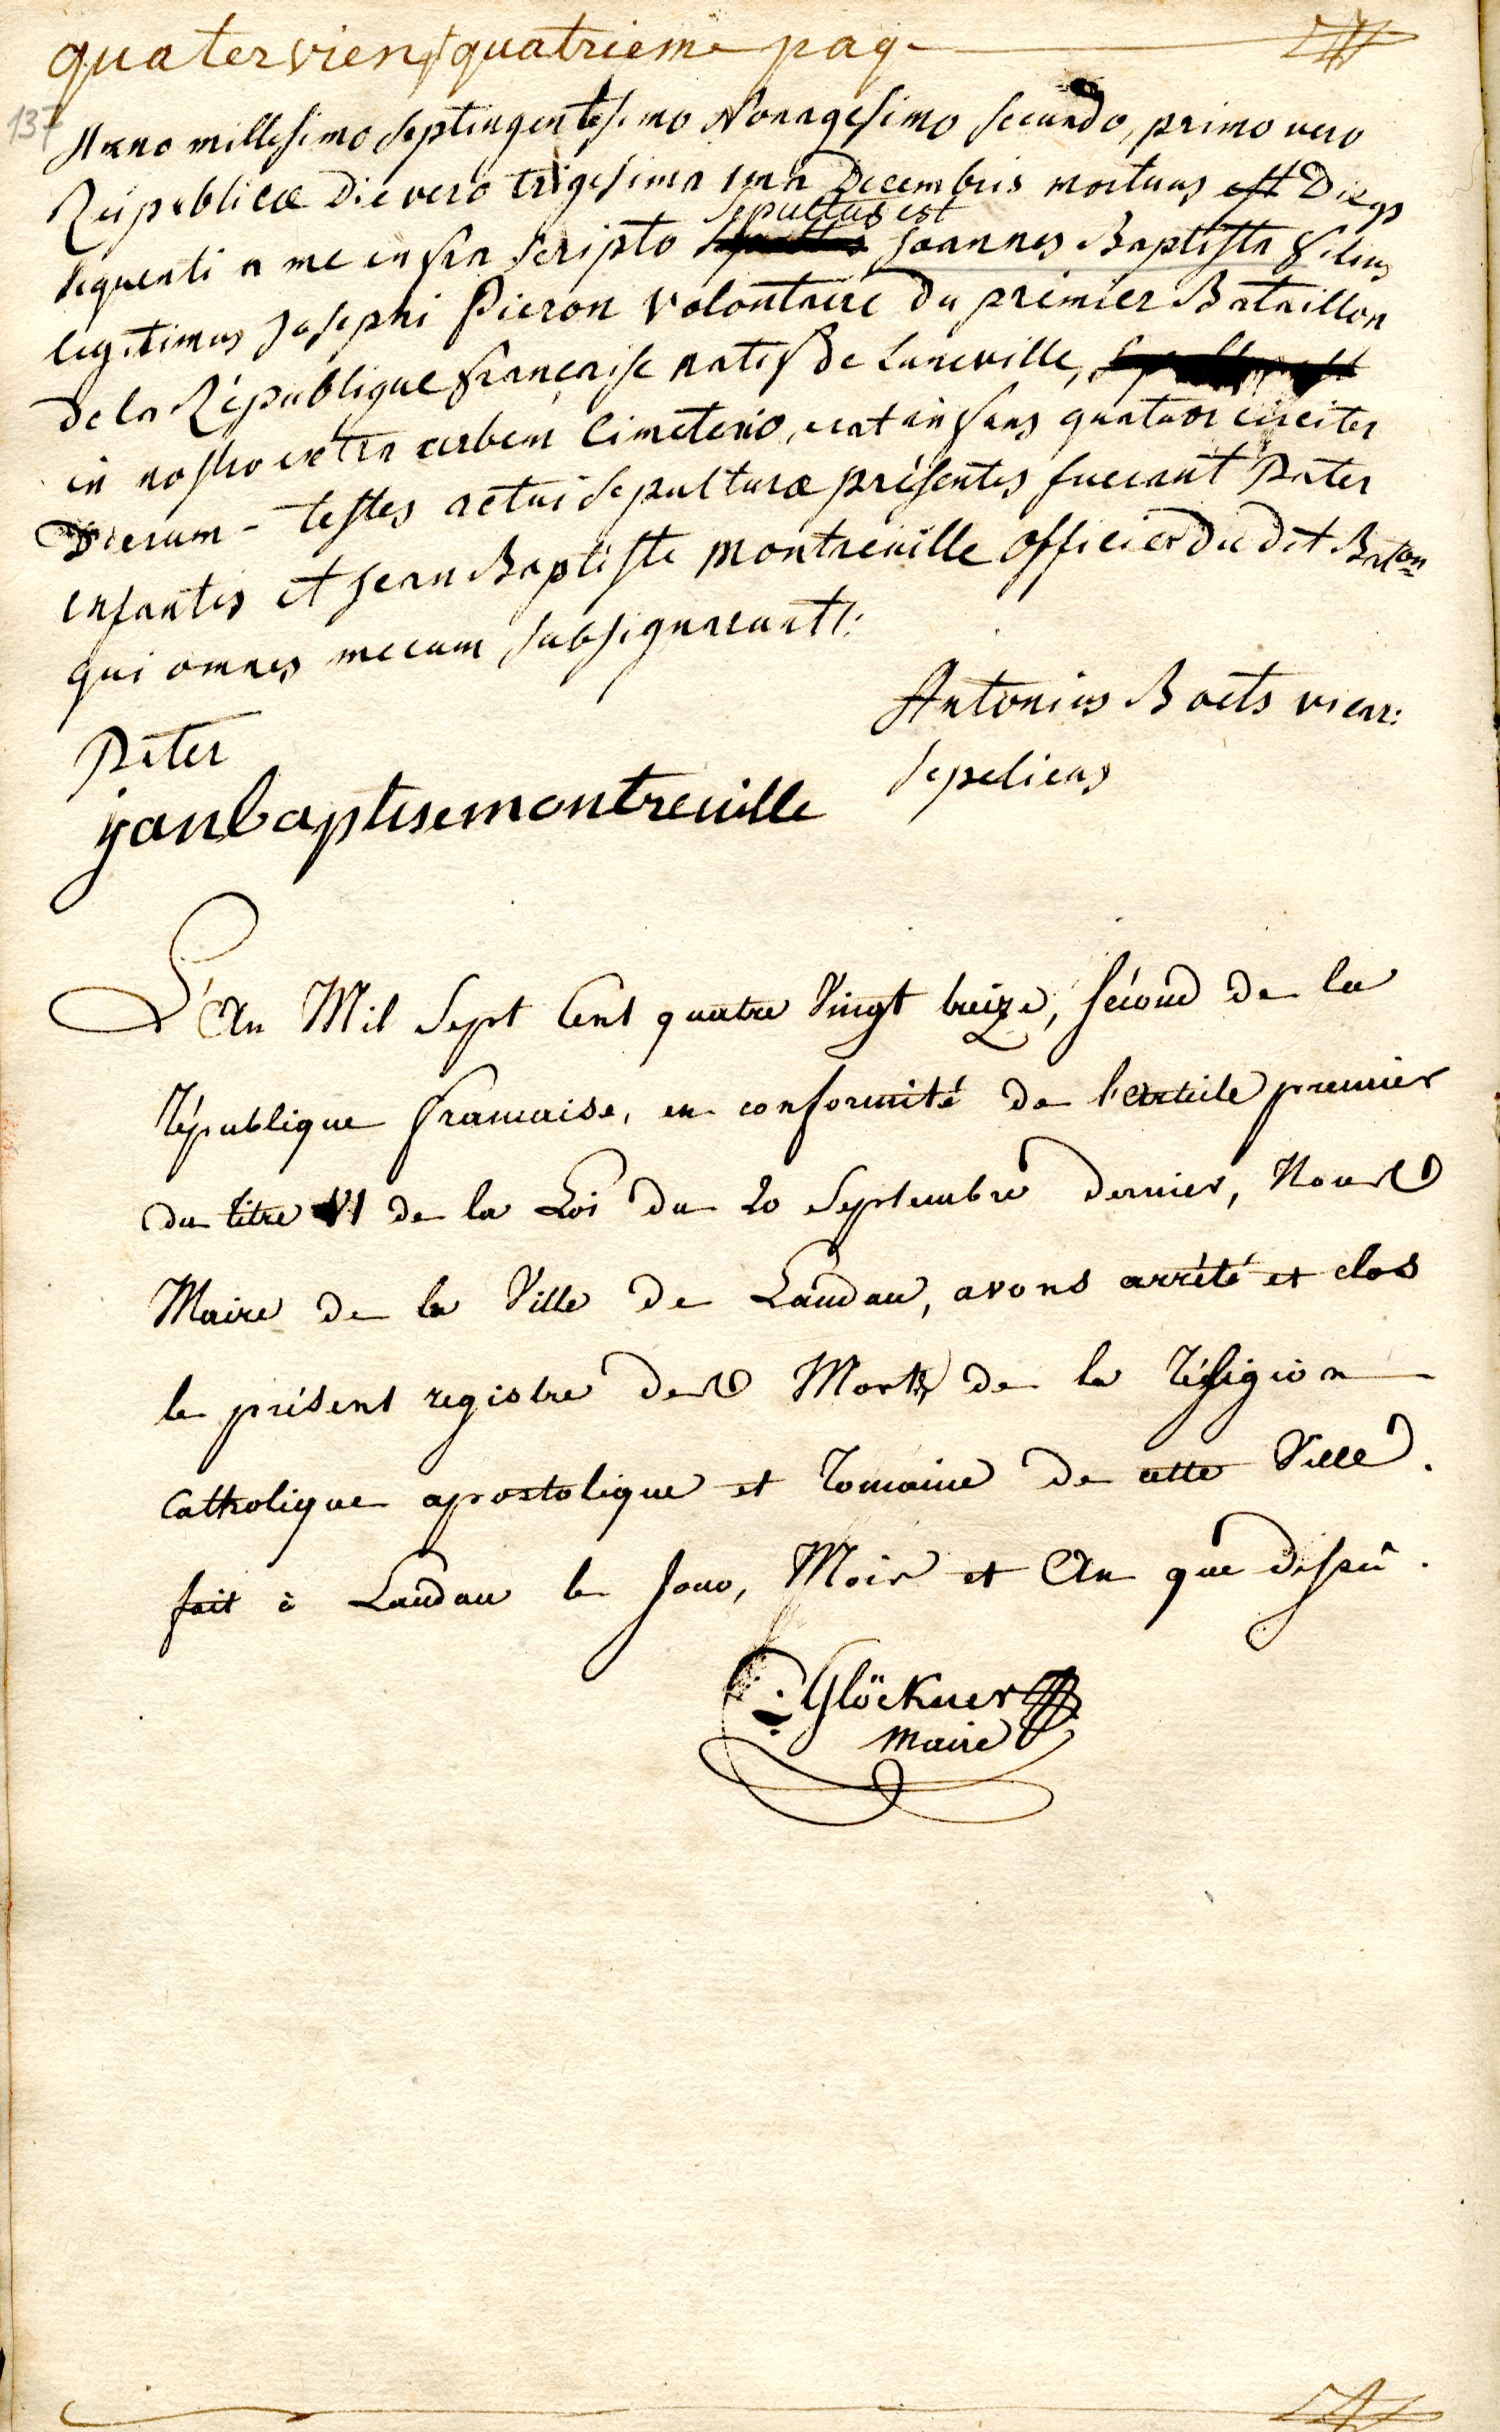 quatervient quatrieme page
137
Anno millesimo septingentesimo Nonagesimo secundo, primo vero
Reipublicæ Die vero trigesima ima Decembris mortuus est Dieqs
sequenti a me infra scripto sepultus est Joannes Baptista filius
legitimus Josephi Pieron volontaire du premier Bataillon
de la République française natif de Luneville,
in nostro extra urbem Cimeterio, erat infans quatuor circiter
Dierum - testes actui sepulturæ présentes fuerunt Pater
infantis et Jean Baptiste montreuille officier du dit Baton
qui omnes mecum subsignarunt:
Antonius Boets vicar:
Pater
sepeliens
janbaptisemontreuille
L'An Mil Sept Cent quatre Vingt treize, sécond de la
République francaise, en conformité de l'article premier
du titre VI de la Loi du 20 Septembre dernier, Nous
Maire de la Ville de Landau, avons arrêté et clos
le présent registre des Morts de la Réligion
Catholique apostolique et Romaine de cette Ville.
fait à Landau le Jour, Mois et An que dessû.
Glöckner
Maire